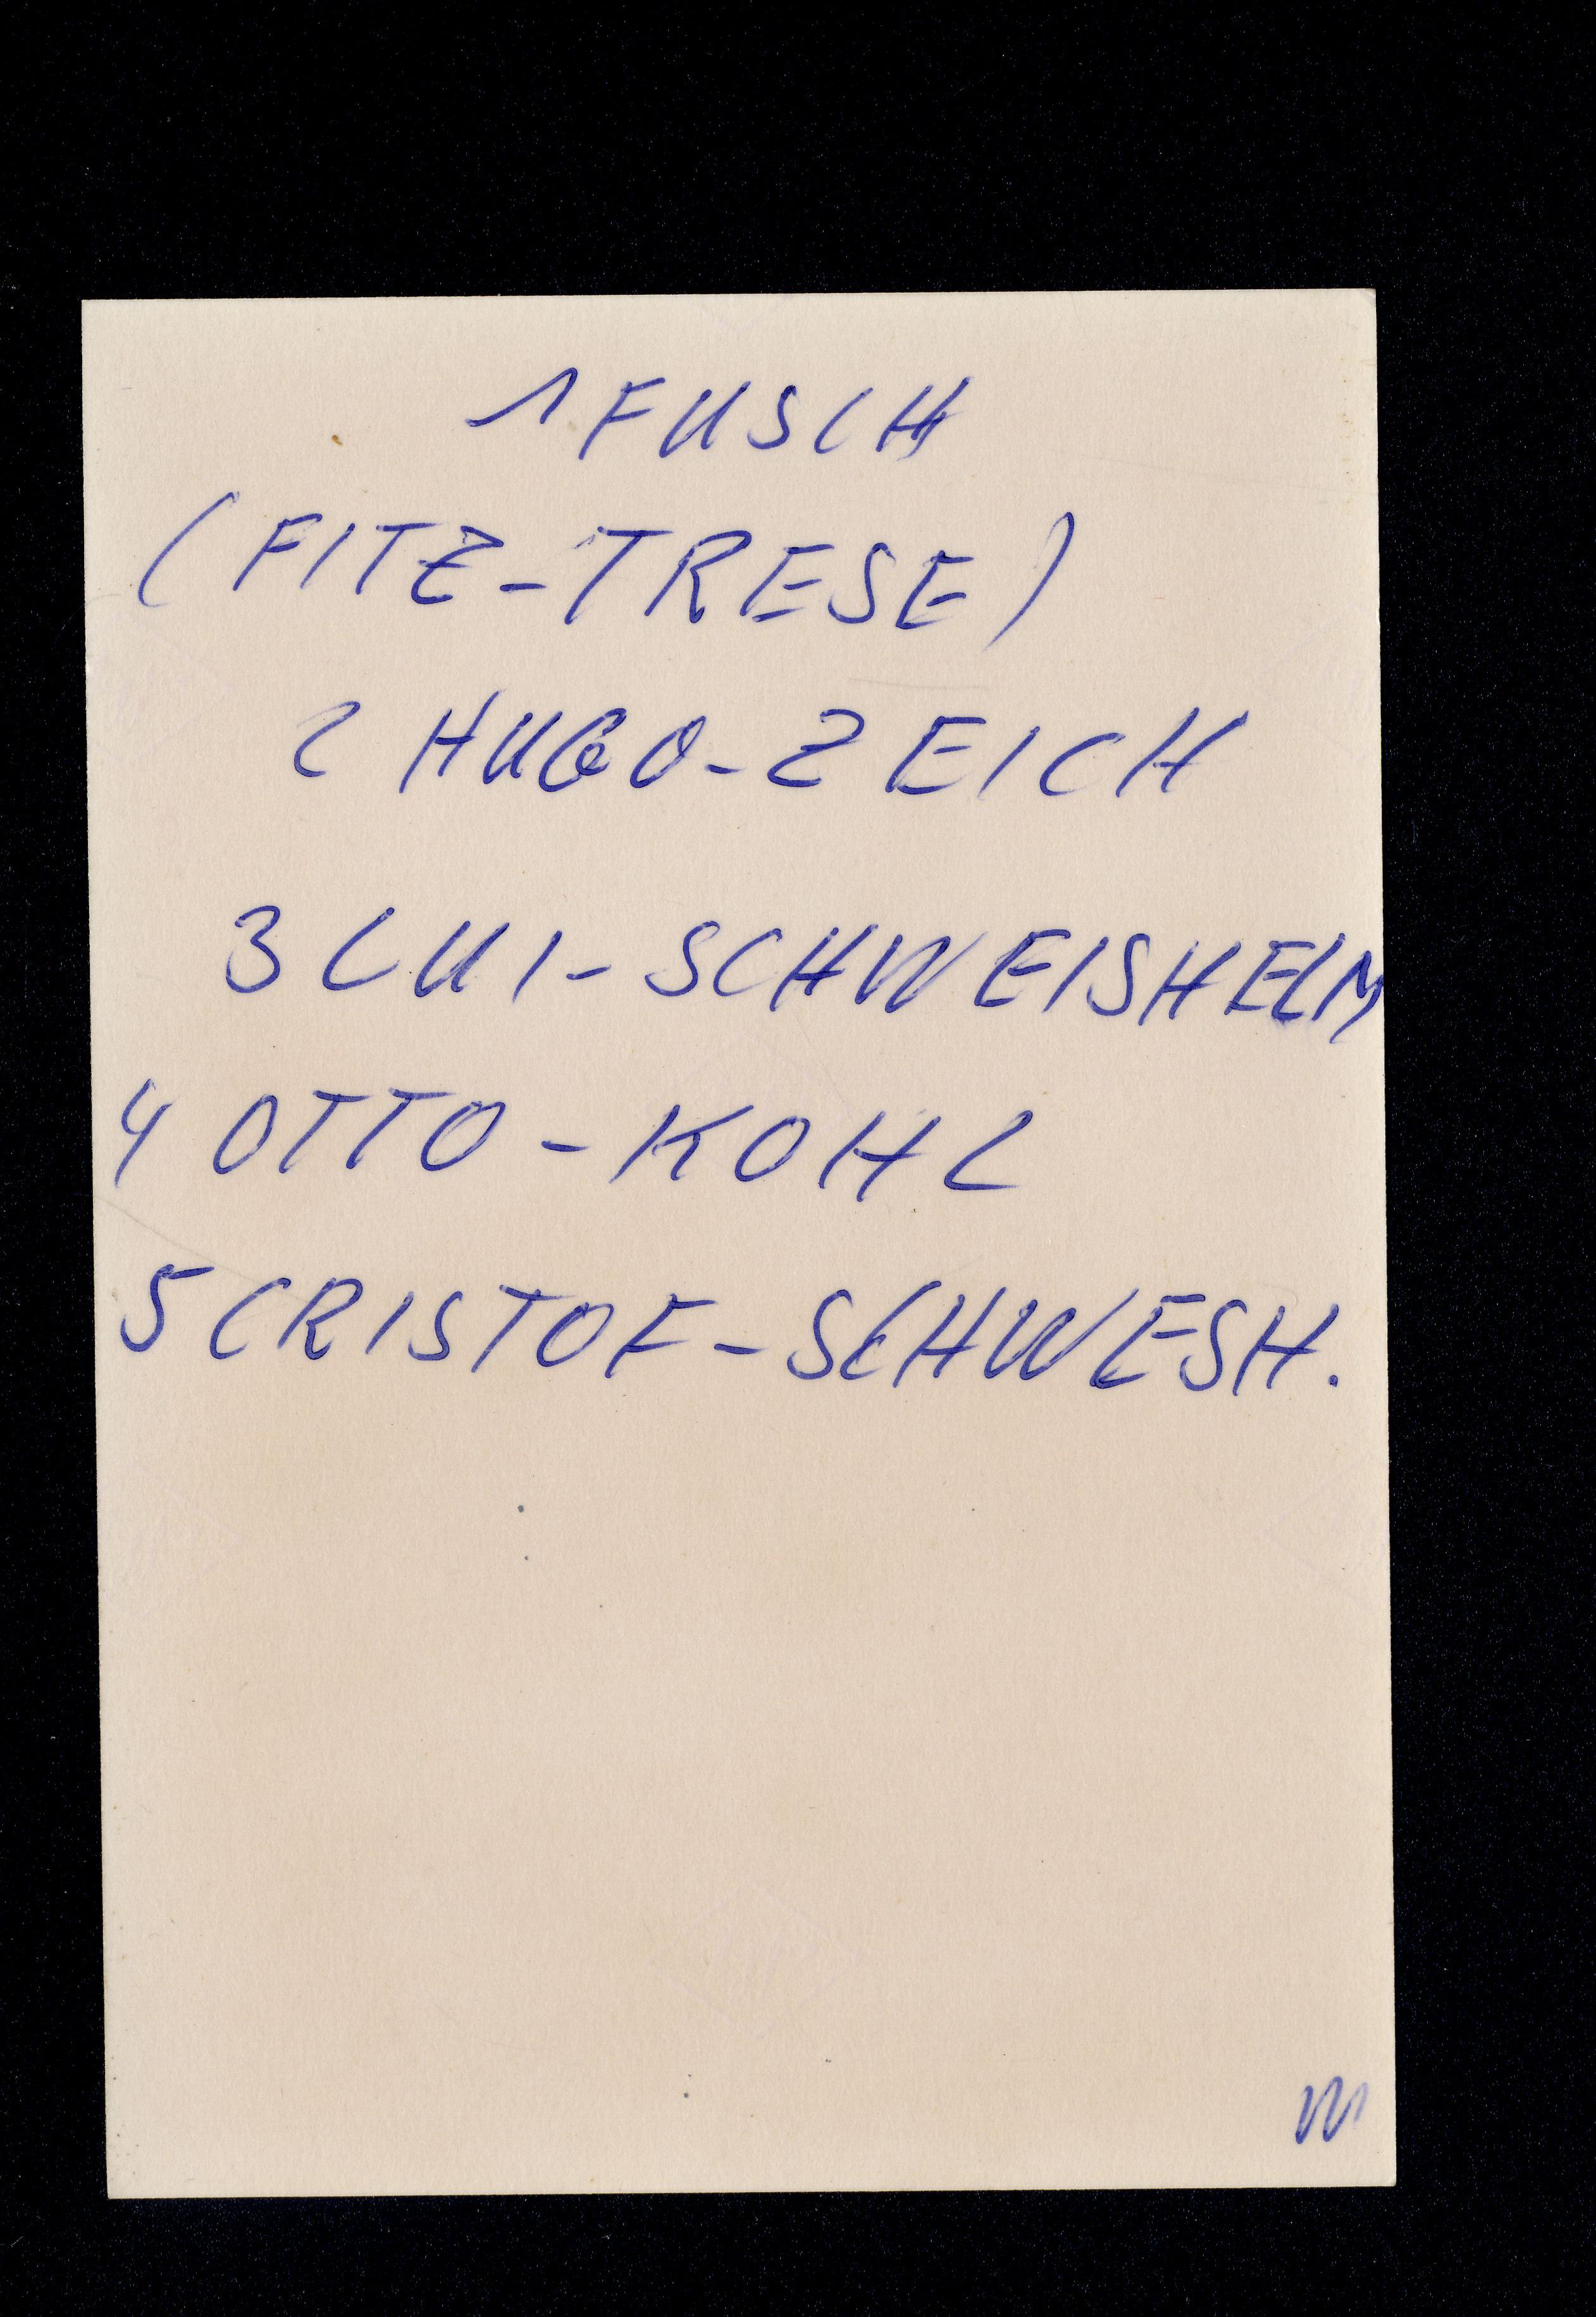 1 FUSCH
(FITZ-TRESE)
2 HUGO-ZEICH
3 LUI-SCHWEISHELM
4 OTTO-KOHL
5 CRISTOF-SCHWESH.